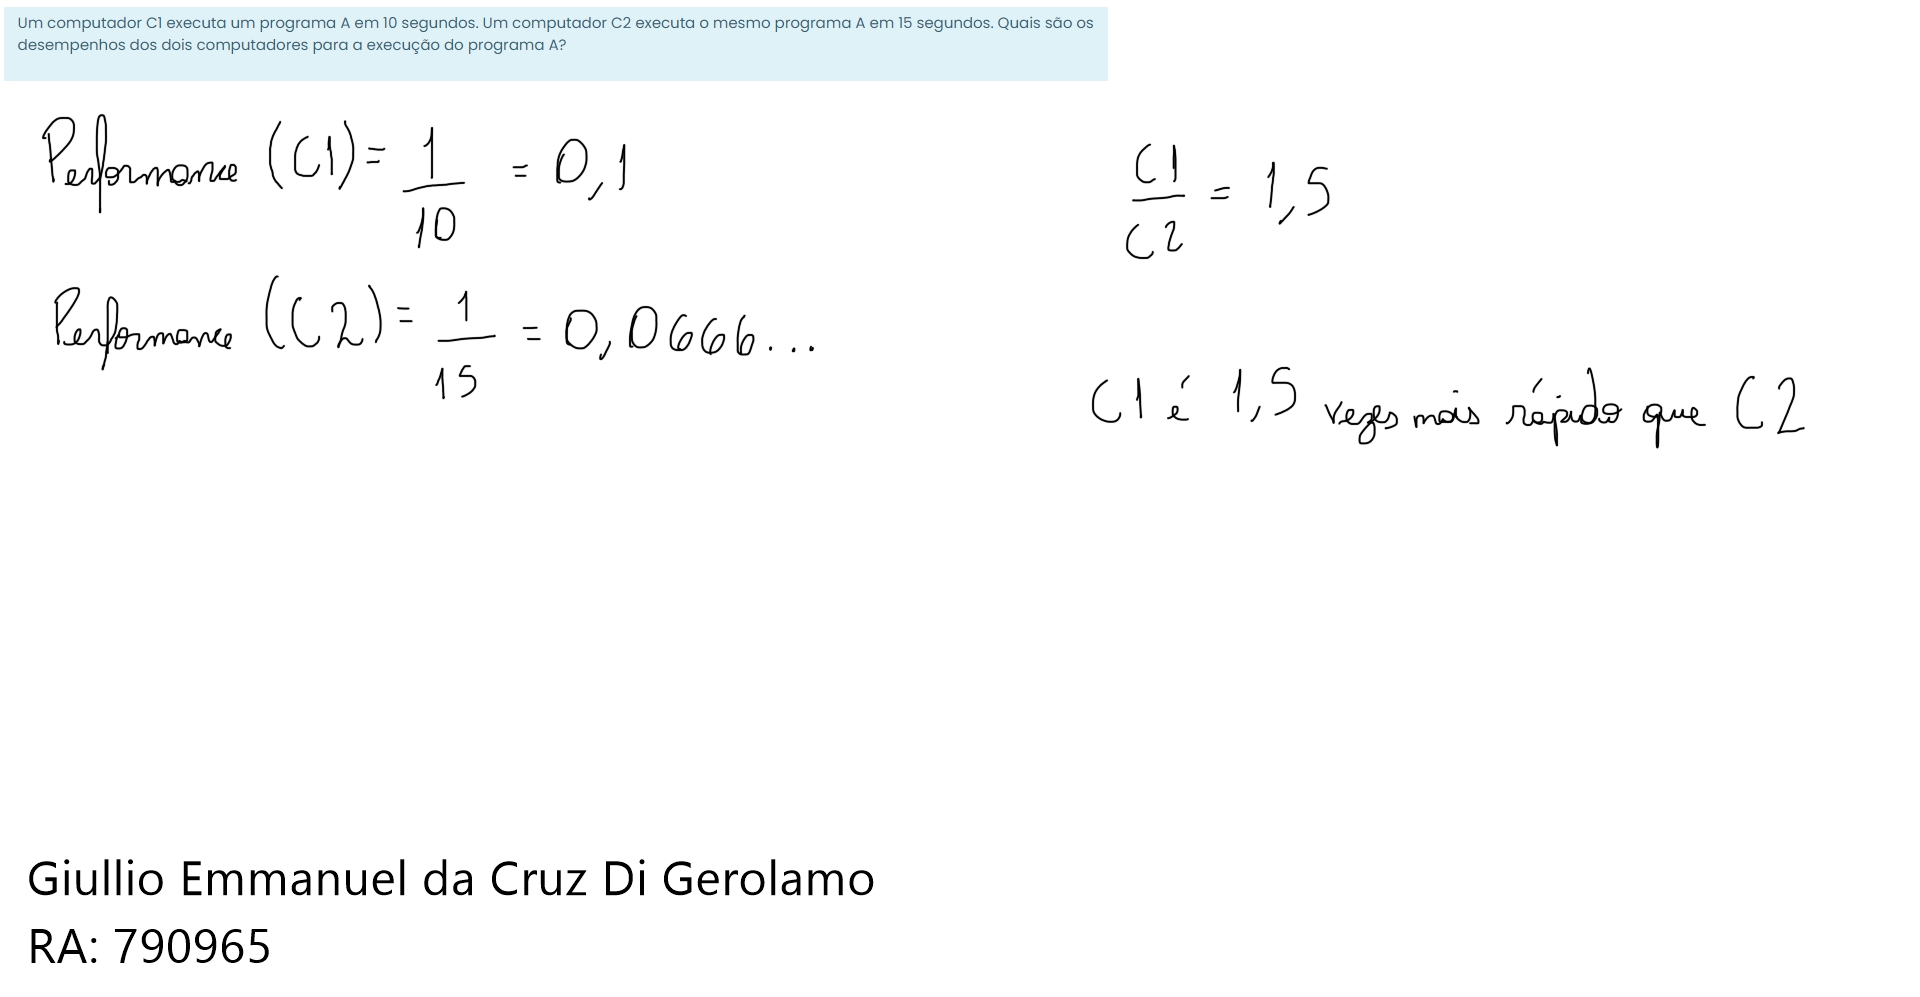 Um computador C1 executa um programa A em 10 segundos. Um computador C2 executa o mesmo programa A em 15 segundos. Quais são os
desempenhos dos dois computadores para a execução do programa A?
Performance (C1) = 1/10 = 0,1
Performance (C2) = 1/15 = 0,0666...
C1/C2 = 1,5
C1 é 1,5 vezes mais rápido que C2
Giullio Emmanuel da Cruz Di Gerolamo
RA: 790965